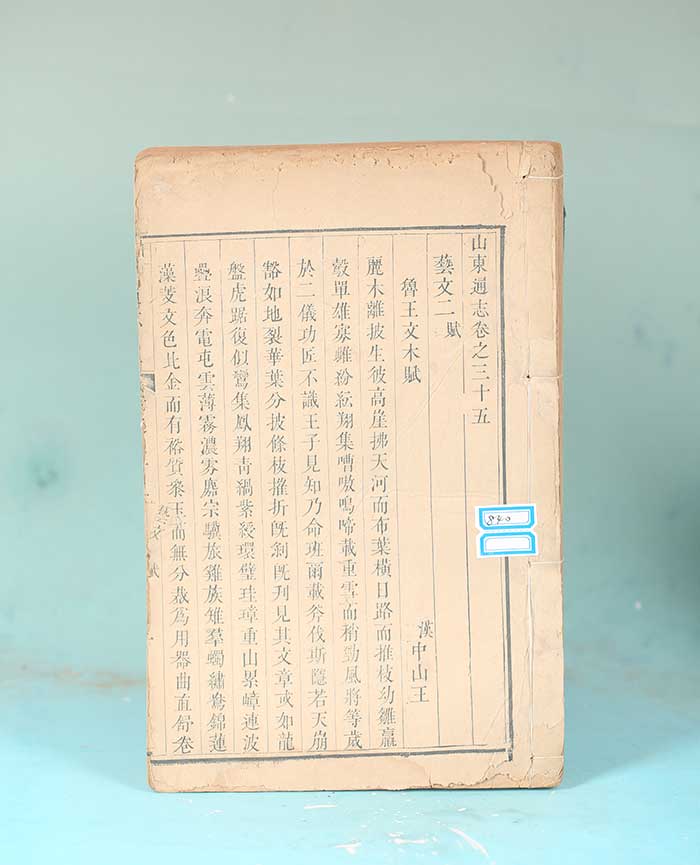 山東通志卷之三十五
藝文二 賦
魯王文木賦
漢中山王
麗木離披生彼高崖拂天河而布葉橫日路而推枝幼雛羸
鷇單雄寡雌紛紜翔集嘈嗷鳴啼載重雪而稍勁風將等歲
於二儀功匠不識王子見知乃命班爾載斧伐斯隱若天崩
豁如地裂華葉分披條枝摧折旣剝旣刋見其文章或如龍
盤虎踞復似鸞集鳳翔靑緺紫綬環璧珪璋重山累嶂連波
疊浪奔電屯雲薄霧濃雰麚宗驥旅雞族雉羣蠋繡鴦錦蓮
藻芰文色比金而有裕質參玉而無分裁爲用器曲直舒卷
840